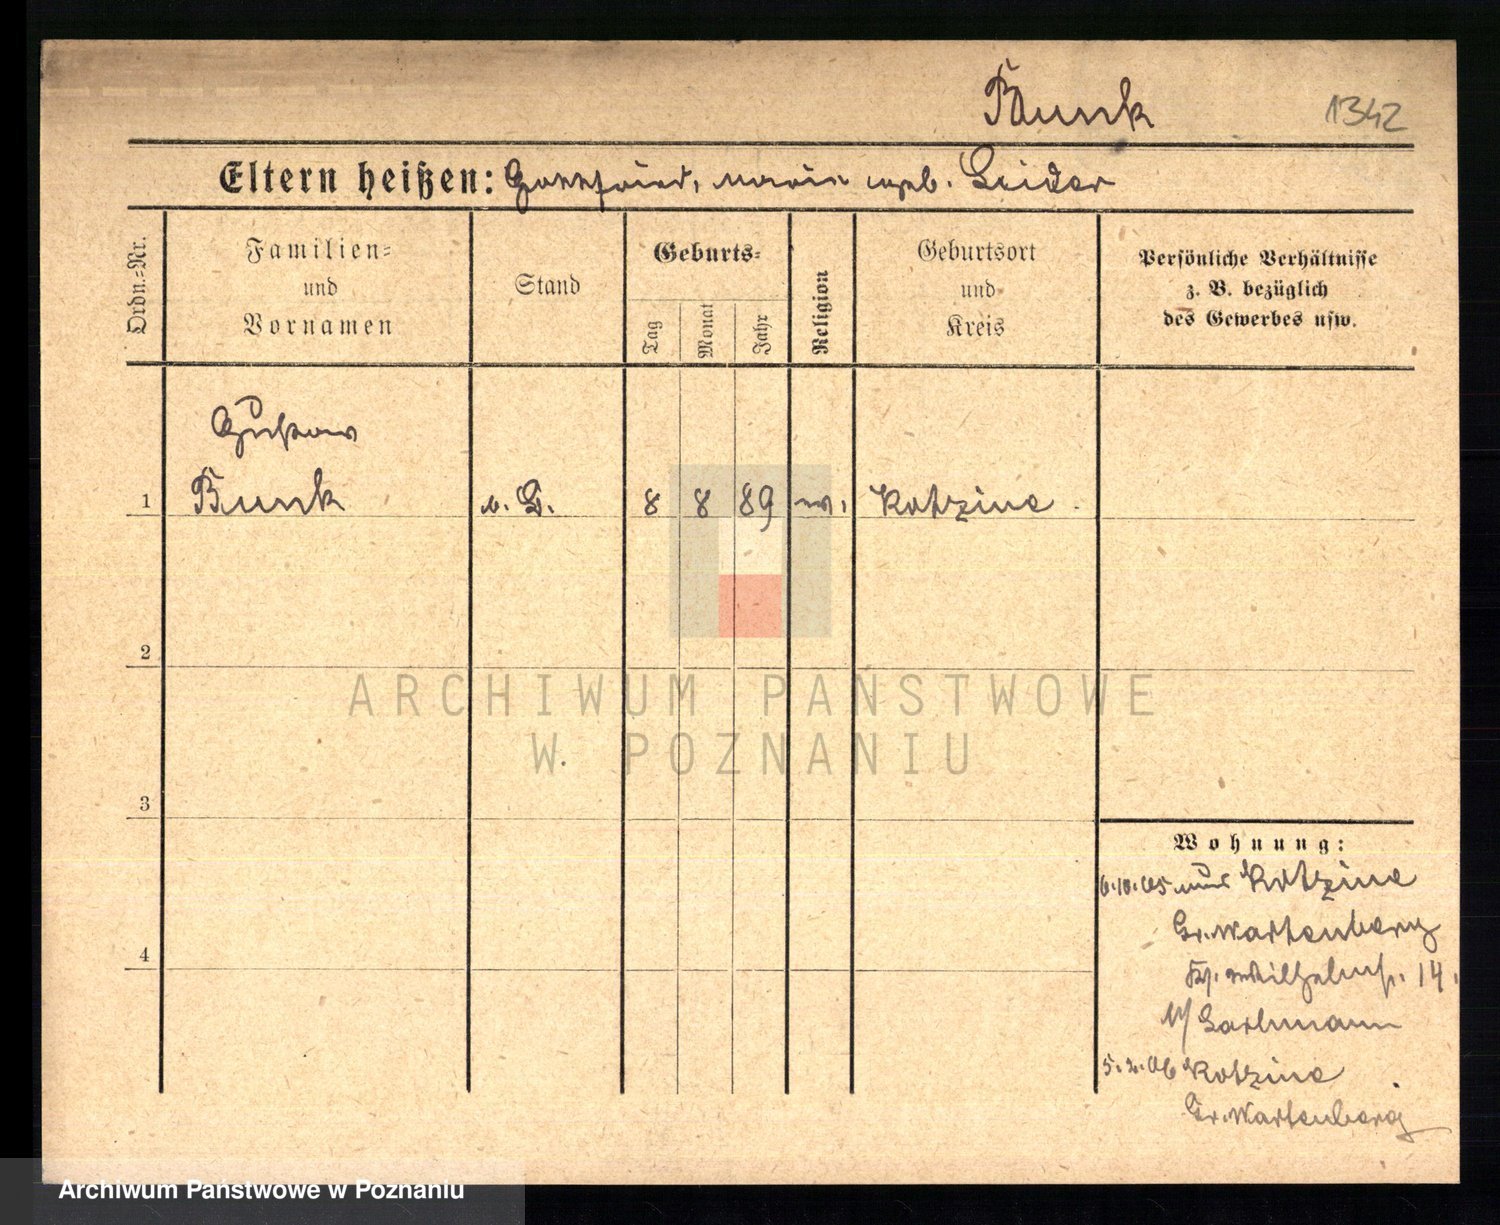 Bunk 1342
Eltern heißen: Gottfried, Marie geb. Leider
Ordn.-Nr.
Familien-
und
Vornamen
Stand
Geburts-
Tag
Monat
Jahr
Religion
Geburtsort
und
Kreis
Persönliche Verhältnisse
z. B. bezüglich
des Gewerbes usw.
Gustav
1 Bunk 8 8 89 Kotzine
2
3
4
ARCHIWUM PAŃSTWOWE
W POZNANIU
Wohnung:
6.10.05 Kotzine
Gr. Wartenberg
14.
5.2.06 Kotzine
Gr. Wartenberg
Archiwum Państwowe w Poznaniu